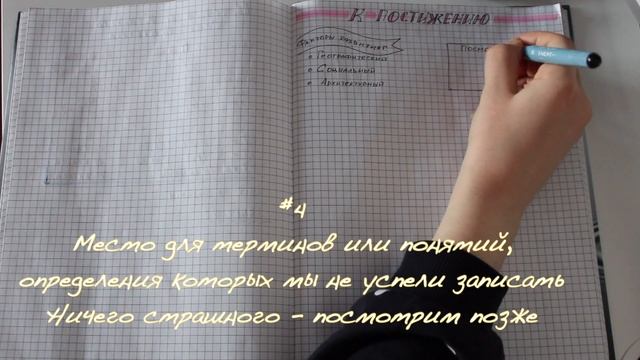 К ПОСТИЖЕНИЮ
Факторы развития
Географический
Социальный
Архитектурный
Посмо
#4
Место для терминов или понятий,
определения которых мы не успели записать
Ничего страшного - посмотрим позже